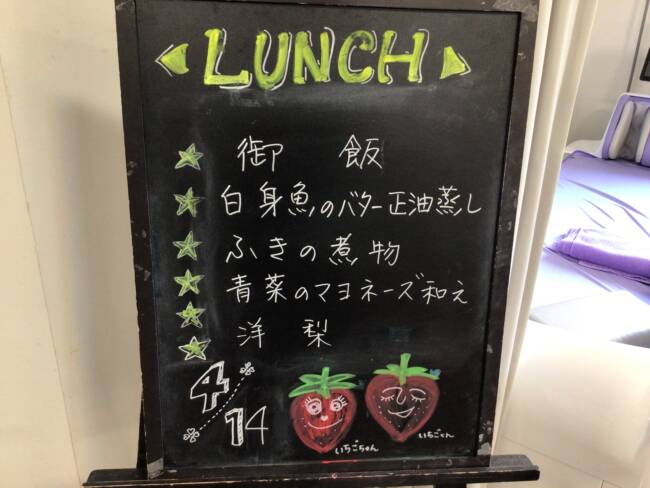 LUNCH
御 飯
白身魚のバター正油蒸し
ふきの煮物
青菜のマヨネーズ和え
洋 梨
4
14
いちごちゃん
いちごくん